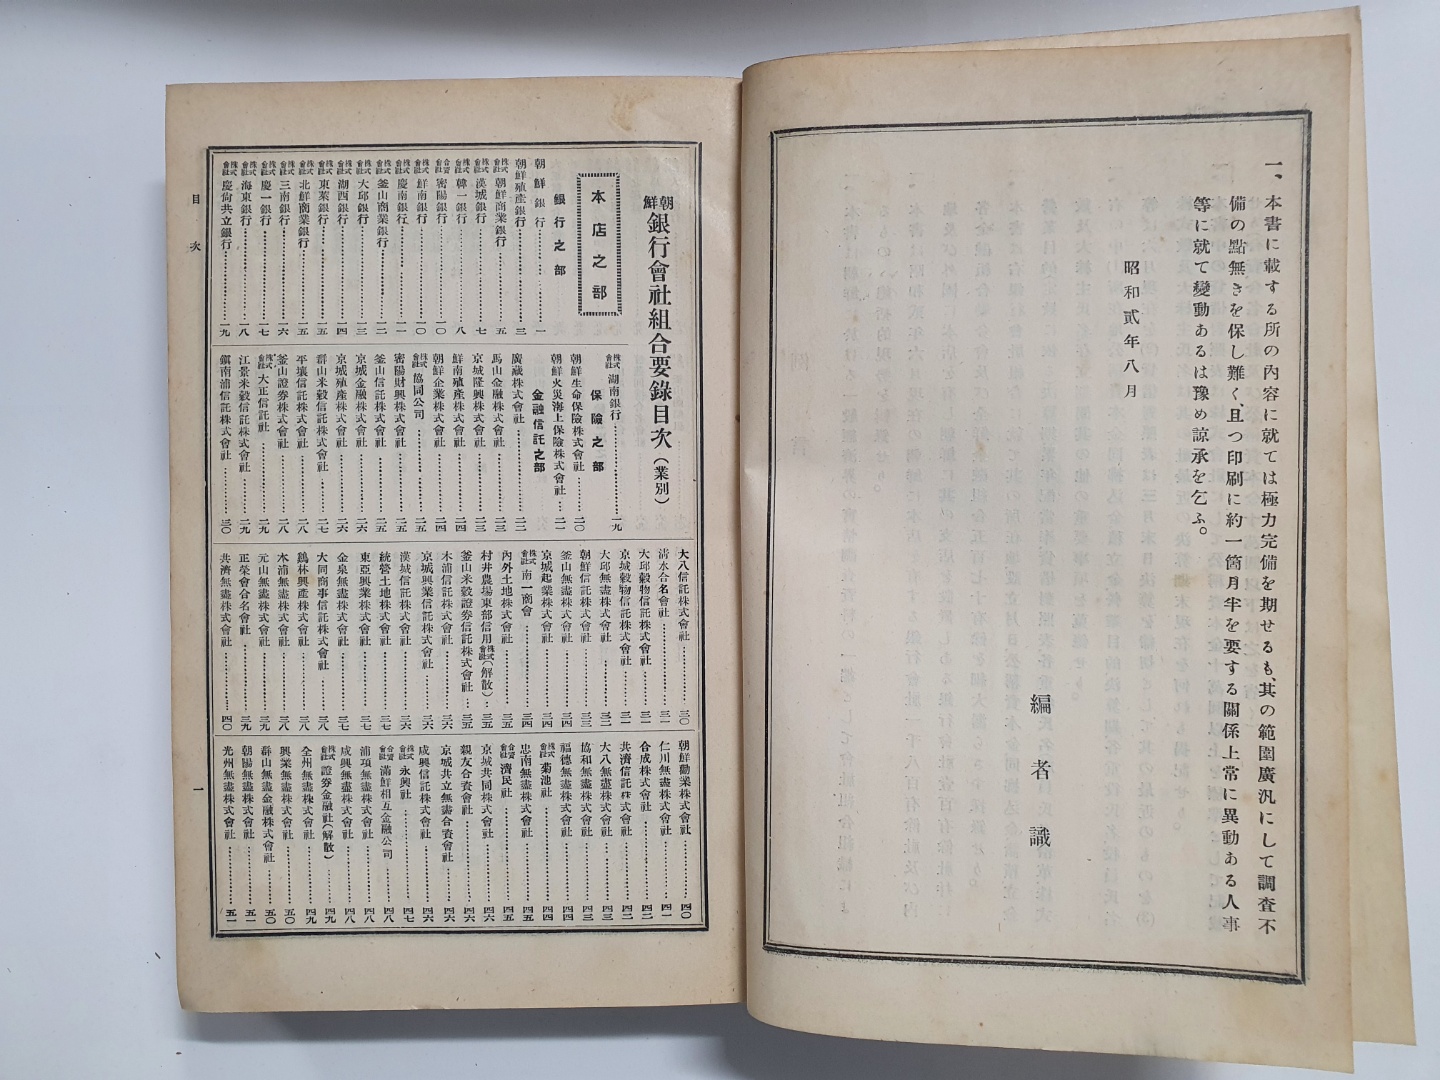 一、本書に載する所の内容に就ては極力完備を期せるも、其の範圍廣汎にして調査不
備の點無きを保し難く、且つ印刷に約一箇月半を要する關係上常に異動ある人事
等に就て變動あるは豫め諒承を乞ふ。
昭和貳年八月
編者識
朝鮮銀行會社組合要錄目次(業別)
本店之部
銀行之部
朝鮮銀行……一
朝鮮殖產銀行……三
株式會社朝鮮商業銀行……五
株式會社漢城銀行……七
株式會社韓一銀行……八
合資會社密陽銀行……一〇
株式會社鮮南銀行……一〇
株式會社慶南銀行……一一
株式會社釜山商業銀行……一二
株式會社大邱銀行……一三
株式會社湖西銀行……一四
株式會社東萊銀行……一五
株式會社北鮮商業銀行……一五
株式會社三南銀行……一六
株式會社慶一銀行……一七
株式會社海東銀行……一八
株式會社慶尙共立銀行……一九
株式會社湖南銀行……一九
保險之部
朝鮮生命保險株式會社……二〇
朝鮮火災海上保險株式會社……二一
金融信託之部
廣藏株式會社……二二
馬山金融株式會社……二三
京城隆興株式會社……二三
鮮南殖產株式會社……二四
朝鮮企業株式會社……二四
株式會社協同公司……二五
密陽財興株式會社……二五
釜山信託株式會社……二五
京城金融株式會社……二六
京城殖產株式會社……二六
群山米穀信託株式會社……二七
平壤信託株式會社……二八
釜山證券株式會社……二八
株式會社大正信託社……二九
江景米穀信託株式會社……二九
鎭南浦信託株式會社……三〇
大八信託株式會社……三〇
淸水合名會社……三一
大邱穀物信託株式會社……三一
京城穀物信託株式會社……三一
大邱無盡株式會社……三二
朝鮮信託株式會社……三三
釜山無盡株式會社……三四
京城起業株式會社……三四
株式會社南一商會……三四
內外土地株式會社……三五
村井農場東部信用株式會社(解散)……三五
釜山米穀證券信託株式會社……三五
木浦信託株式會社……三六
京城興業信託株式會社……三六
漢城信託株式會社……三六
統營土地株式會社……三七
東亞興業株式會社……三七
金泉無盡株式會社……三七
大同商事信託株式會社……三八
鷄林興產株式會社……三八
木浦無盡株式會社……三八
元山無盡株式會社……三九
正榮會合名會社……三九
共濟無盡株式會社……四〇
朝鮮勸業株式會社……四〇
仁川無盡株式會社……四一
合成株式會社……四二
共濟信託株式會社……四二
大八無盡株式會社……四三
協和無盡株式會社……四三
福德無盡株式會社……四四
株式會社菊池社……四四
忠南無盡株式會社……四四
合資會社濟民社……四五
京城共同株式會社……四六
親友合資會社……四六
京城共立無盡合資會社……四六
咸興信託株式會社……四六
株式會社永興社……四七
合資會社滿鮮相互金融公司……四八
浦項無盡株式會社……四八
咸興無盡株式會社……四八
株式會社證券金融社(解散)……四九
全州無盡株式會社……四九
興業無盡株式會社……五〇
群山無盡金融株式會社……五〇
朝陽無盡株式會社……五一
光州無盡株式會社……五一
目次
一